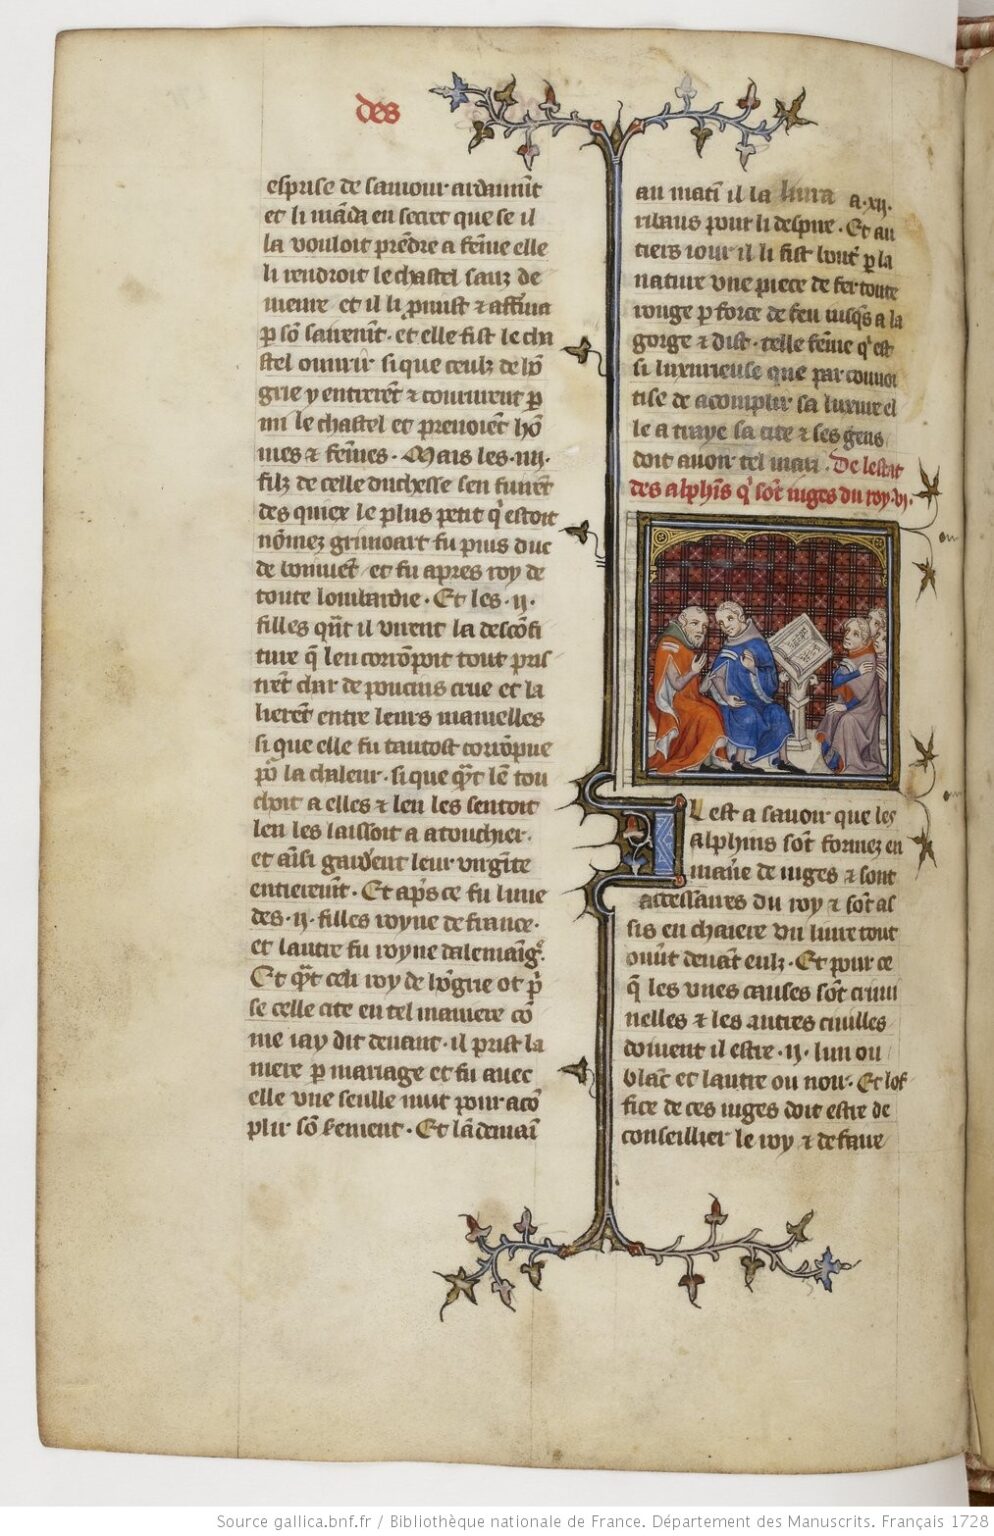 des
esprise de samour ardanmt̃
et li mãda en secret que se il
la vouloit prẽdre a fẽme elle
li rendroit le chastel sanz de
meure et il li ꝓmist ⁊ afferma
ꝑ sõ sairemt̃ · et elle fist le cha
stel ouurir si que ceulz de hõ
grie y entrerẽt ⁊ coururent ꝑ
mi le chastel et prenoiẽt hõ
mes ⁊ fẽmes · Mais les ·iiij·
filz de celle duchesse sen fuirẽt
des quiex le plus petit q̃ estoit
nõmez grimoart fu puis duc
de boniuẽt et fu apres roy de
toute lombardie · Et les ·ij·
filles qñt il virent la descõfi
ture q̃ len corrõpoit tout pris
rẽt char de poucins crue et la
lierẽt entre leurs mamelles
si que elle fu tantost corrõpue
po᷑ la chaleur · si que qñt lẽ tou
choit a elles ⁊ len les sentoit
len les laissoit a atouchier ·
et aĩsi gardẽt leur virgĩte
entieremt̃ · Et ap̃s ce fu lune
des ·ij· filles royne de france ·
et lautre fu royne dalemaig̃ ·
Et qñt celi roy de hõgrie ot p̃
se celle cite en tel maniere cõ
me iay dit deuant · il prist la
mere ꝑ mariage et fu auec
elle vne seulle nuit pour acõ
plir sõ serement · Et lãdemaĩ
au matĩ il la liura a ·xij·
ribaus pour li despire · Et au
tiers iour il li fist bout̃ ꝑ la
nature vne piece de fer toute
rouge ꝑ force de feu iusq̃s a la
gorge ⁊ dist · telle fẽme q̃ est
si luxurieuse que par conuoi
tise de acomplir sa luxure el
le a traye sa cite ⁊ ses gens
doit auoir tel mari · De lestat
des alphĩs q̃ sõt iuges du roy · vj ·
IL est a sauoir que les
alphins sõt formez en
maĩe de iuges ⁊ sont
du roy ⁊ sõt as
sis en chaiere vn liure tout
ouũt deuãt eulz · Et pour ce
q̃ les vnes causes sõt crimi
nelles ⁊ les autres ciuilles
doiuent il estre ·ij· lun ou
blãc et lautre ou noir · Et lof
fice de ces iuges doit estre de
conseillier le roy ⁊ de faire
Source gallica.bnf.fr / Bibliothèque nationale de France. Département des Manuscrits. Français 1728